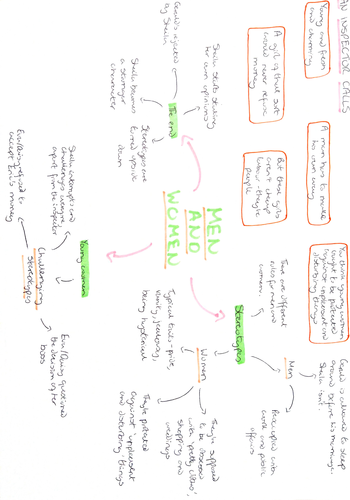 AN INSPECTOR CALLS
Young and fresh
and charming
A girl of that sort
would never refuse
money
A man has to make
his own way
But these girls
aren't cheap
labour - they're
people
You think young women
ought to be protected
against unpleasant and
disturbing things
MEN
AND
WOMEN
The end
Gerald is rejected
by Sheila
Sheila starts stating
her own opinions
Sheila becomes
a stronger
character
Stereotypes are
turned upside
down
Stereotypes
There are different
rules for men and
women.
Men
Gerald is allowed to sleep
around before his marriage.
Sheila isn't.
Preoccupied with
work and public
affairs
Women
Typical traits - pride,
vanity, jealousy,
being hysterical
They're supposed
to be obsessed
with 'pretty clothes',
shopping and
weddings
They're protected
against 'unpleasant
and disturbing' things
Young women
Challenging
stereotypes
Sheila interrupts and
challenges everyone
apart from the inspector
Eva refused to
accept Eric's money
Eva/Daisy questioned
the decision of her
boss